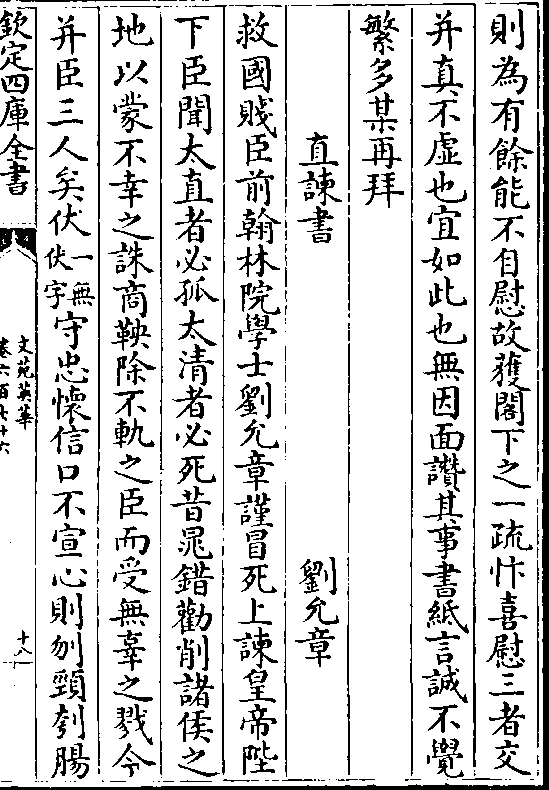 則為有餘能不自慰故獲閣下之一疏忭喜慰三者交
并真不虛也宜如此也無因面讚其事書紙言誠不覺
繁多某再拜
直諫書 劉允章
救國賤臣前翰林院學士劉允章謹冒死上諫皇帝陛
下臣聞太直者必孤太清者必死昔鼂錯勸削諸侯之
地以蒙不幸之誅商鞅除不軌之臣而受無辜之戮今
并臣三人矣伏一無伏字守忠懷信口不宣心則刎頸刳腸
欽定四庫全書
文苑英華
卷六百七十六
十八